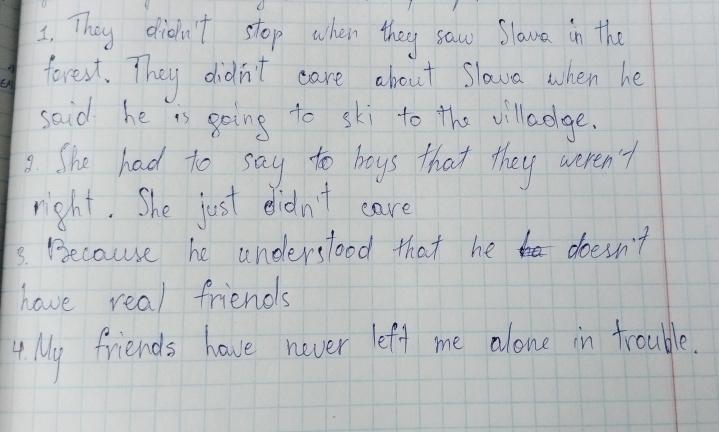 1. They didn't stop when they saw Slava in the
forest. They didn't care about Slava when he
said he is going to ski to the villadge.
2. She had to say to boys that they weren't
right. She just didn't care
3. Because he understood that he doesn't
have real friends
4. My friends have never left me alone in trouble.